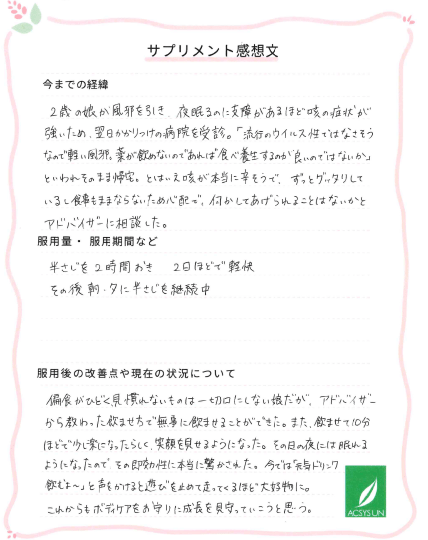 サプリメント感想文
今までの経緯
2歳の娘が風邪を引き、夜眠るのに支障があるほど咳の症状が
強いため、翌日かかりつけの病院を受診。「流行のウイルス性ではなさそう
なので軽い風邪。薬が飲めないのであれば食べ養生するのが良いのではないか」
といわれそのまま帰宅。とはいえ咳が本当に辛そうで、ずっとグッタリして
いるし食事もままならないため心配で、何かしてあげられることはないかと
アドバイザーに相談した。
服用量・服用期間など
半さじを2時間おき 2日ほどで軽快
その後朝・夕に半さじを継続中
服用後の改善点や現在の状況について
偏食がひどく見慣れないものは一切口にしない娘だが、アドバイザー
から教わった飲ませ方で無事に飲ませることができた。また、飲ませて10分
ほどで少し楽になったらしく、笑顔を見せるようになった。その日の夜には眠れる
ようになったので、その即効性に本当に驚かされた。今では"元気ドリンク
飲むよ〜"と声をかけると遊びを止めて走ってくるほど大好物に。
これからもボディケアをお守りに成長を見守っていこうと思う。
ACSYSUN